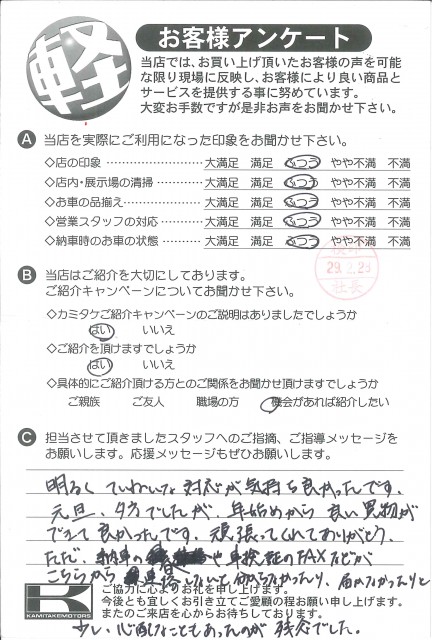 軽
お客様アンケート
当店では、お買い上げ頂いたお客様の声を可能
な限り現場に反映し、お客様により良い商品と
サービスを提供する事に努めています。
大変お手数ですが是非お声をお聞かせ下さい。
A 当店を実際にご利用になった印象をお聞かせ下さい。
◇店の印象 ………………………… 大満足 満足 ふつう やや不満 不満
◇店内・展示場の清掃 …………… 大満足 満足 ふつう やや不満 不満
◇お車の品揃え …………………… 大満足 満足 ふつう やや不満 不満
◇営業スタッフの対応 …………… 大満足 満足 ふつう やや不満 不満
◇納車時のお車の状態 …………… 大満足 満足 ふつう やや不満 不満
29.2.28
社長
B 当店はご紹介を大切にしております。
ご紹介キャンペーンについてお聞かせ下さい。
◇カミタケご紹介キャンペーンのご説明はありましたでしょうか
はい いいえ
◇ご紹介を頂けますでしょうか
はい いいえ
◇具体的にご紹介頂ける方とのご関係をお聞かせ頂けますでしょうか
ご親族 ご友人 職場の方 機会があれば紹介したい
C 担当させて頂きましたスタッフへのご指摘、ご指導メッセージを
お願いします。応援メッセージもぜひお願いします。
明るく ていねいな 対応が 気持ち良かったです。
元旦、夕方でしたが、年始めから 良い買物が
できて 良かったです。頑張ってくれてありがとう。
ただ、納車の や 車検証のFAXなどが
こちらから 連絡しないと 届かなかったりと
少し心配なこともあったのが 残念でした。
K
KAMITAKEMOTORS
ご協力に心よりお礼を申し上げます。
今後とも宜しくお引き立てご愛顧の程お願い申し上げます。
またのご来店を心からお待ちしております。